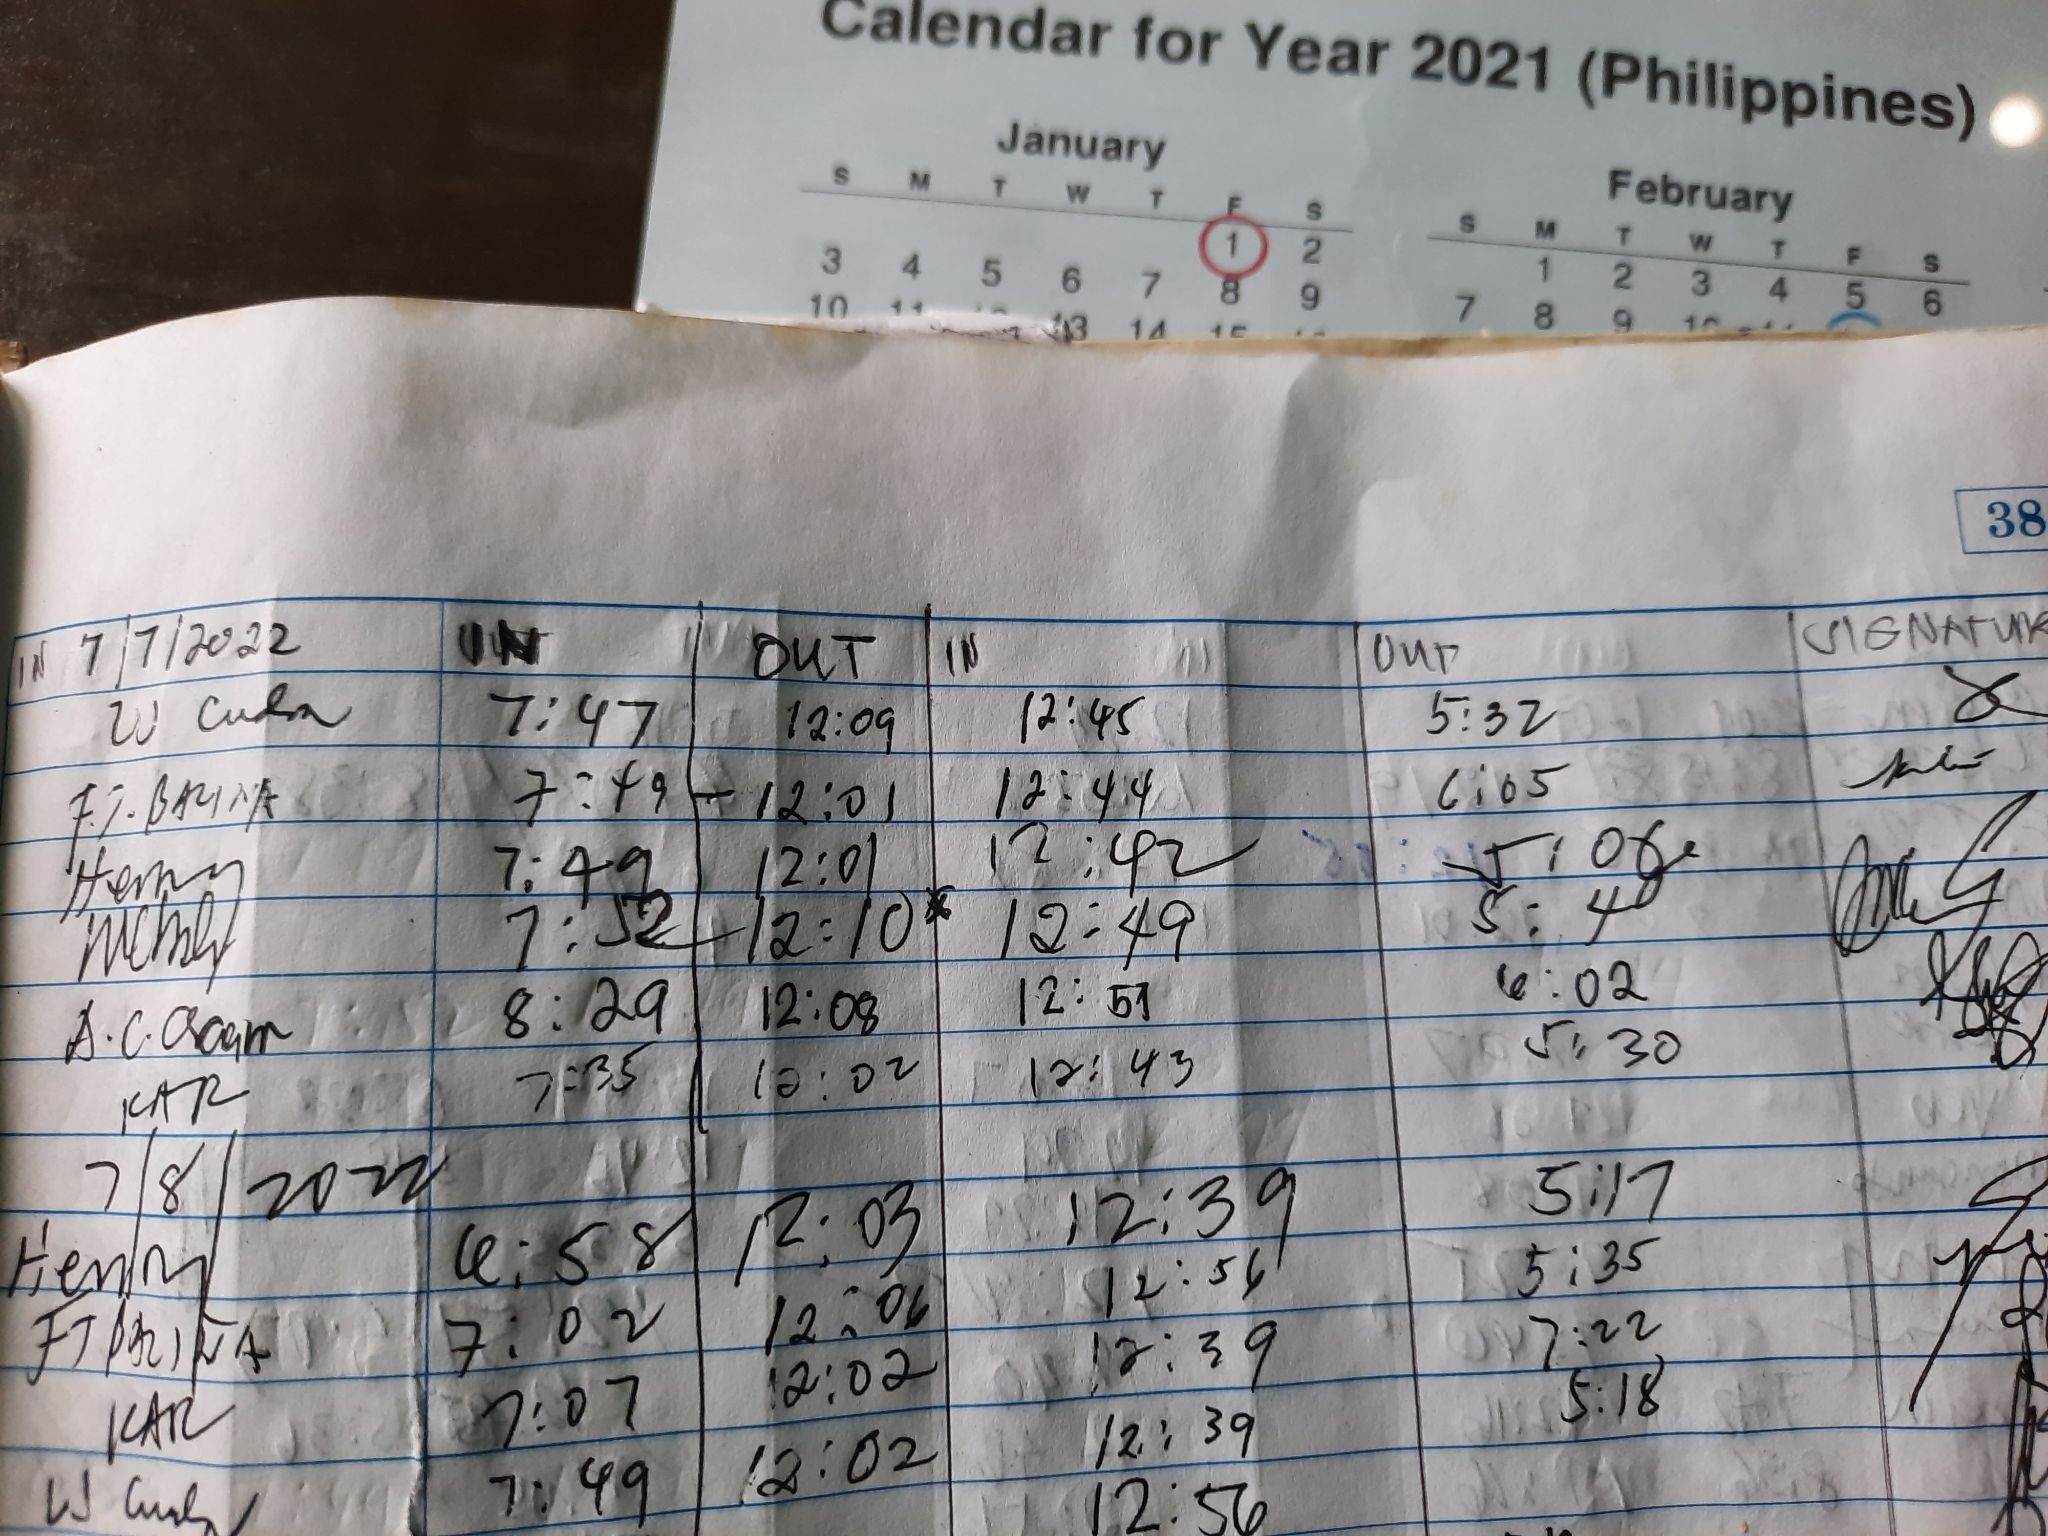 Calendar for Year 2021 (Philippines)
January February
S M T W T F S S M T W T F S
1 2 1 2 3 4 5 6
3 4 5 6 7 8 9 7 8 9
10 13 14
38
IN 7/7/2022 IN OUT IN OUT SIGNATUR
W 7:47 12:09 12:45 5:32
F.T. BAZINA 7:49 12:01 12:44 6:05
Henry 7:49 12:01 12:42 5:06
7:52 12:10 12:49 5:40
A.C. 8:29 12:08 12:51 6:02
KAR 7:35 12:02 12:43 5:30
7/8/2022
Henry 6:58 12:03 12:39 5:17
FT BAZINA 7:02 12:06 12:56 5:35
KAR 7:07 12:02 12:39 7:22
W 7:49 12:02 12:39 5:18
12:56